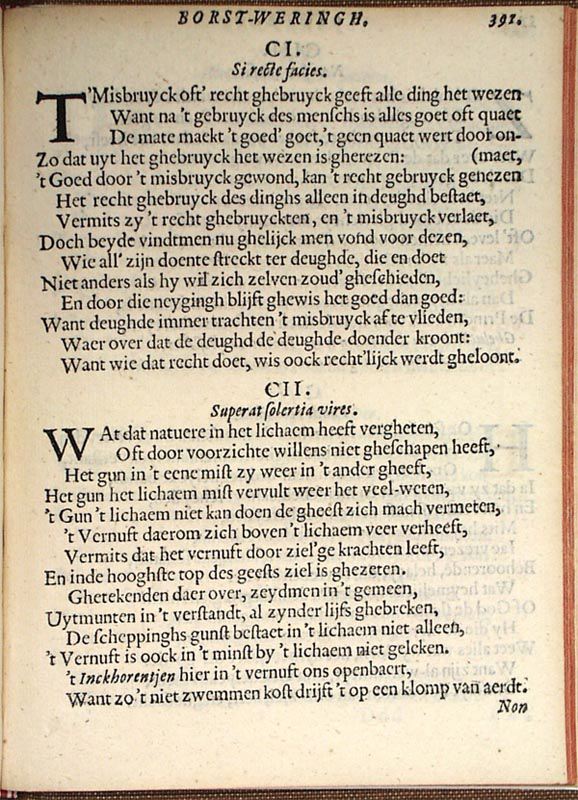 BORST-WERINGH. 391.
CI.
Si recte facies.
T'Misbruyck oft' recht ghebruyck geeft alle ding het wezen
Want na 't gebruyck des menschs is alles goet oft quaet
De mate maekt 't goed' goet, 't geen quaet wert door on-
Zo dat uyt het ghebruyck het wezen is gherezen: (maet,
't Goed door 't misbruyck gewond, kan 't recht gebruyck genezen
Het recht ghebruyck des dinghs alleen in deughd bestaet,
Vermits zy 't recht ghebruyckten, en 't misbruyck verlaet,
Doch beyde vindtmen nu ghelijck men vond voor dezen,
Wie all' zijn doente streckt ter deughde, die en doet
Niet anders als hy wil zich zelven zoud' gheschieden,
En door die neygingh blijft ghewis het goed dan goed:
Want deughde immer trachten 't misbruyck af te vlieden,
Waer over dat de deughd de deughde doender kroont:
Want wie dat recht doet, wis oock recht'lijck werdt gheloont.
CII.
Superat solertia vires.
WAt dat natuere in het lichaem heeft vergheten,
Oft door voorzichte willens niet gheschapen heeft,
Het gun in 't eene mist zy weer in 't ander gheeft,
Het gun het lichaem mist vervult weer het veel-weten,
't Gun 't lichaem niet kan doen de gheest zich mach vermeten,
't Vernuft daerom zich boven 't lichaem veer verheeft,
Vermits dat het vernuft door ziel'ge krachten leeft,
En inde hooghste top des geests ziel is ghezeten.
Ghetekenden daer over, zeydmen in 't gemeen,
Uytmunten in 't verstandt, al zynder lijfs ghebreken,
De scheppinghs gunst bestaet in 't lichaem niet alleen,
't Vernuft is oock in 't minst by 't lichaem niet geleken.
't Inckhorentjen hier in 't vernuft ons openbaert,
Want zo 't niet zwemmen kost drijft 't op een klomp van aerdt.
Non